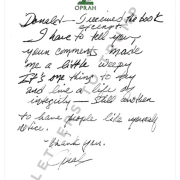 OPRAH
Donald— I received the book
excerpt
I have to tell you
your comments made
me a little weepy
It's one thing to try
and live a life of
integrity — still another
to have people like yourself
notice.
Thank you.